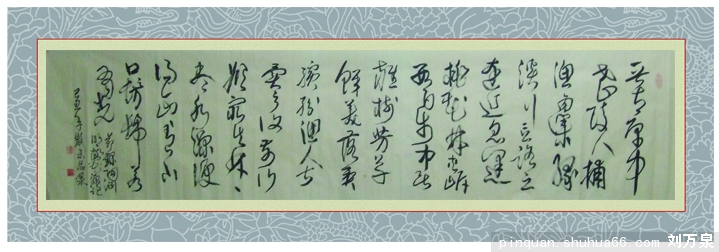 晋太原中
武陵人捕
渔为業缘
溪行忘路之
遠近忽逢
桃花林夹岸
數百步中无
雜樹芳草
鲜美落英
缤纷渔人甚
異之復前行
欲窮其林林
尽水源便
得一山山有小
口彷彿若
有光
pinquan.shuhua66.com 刘万泉